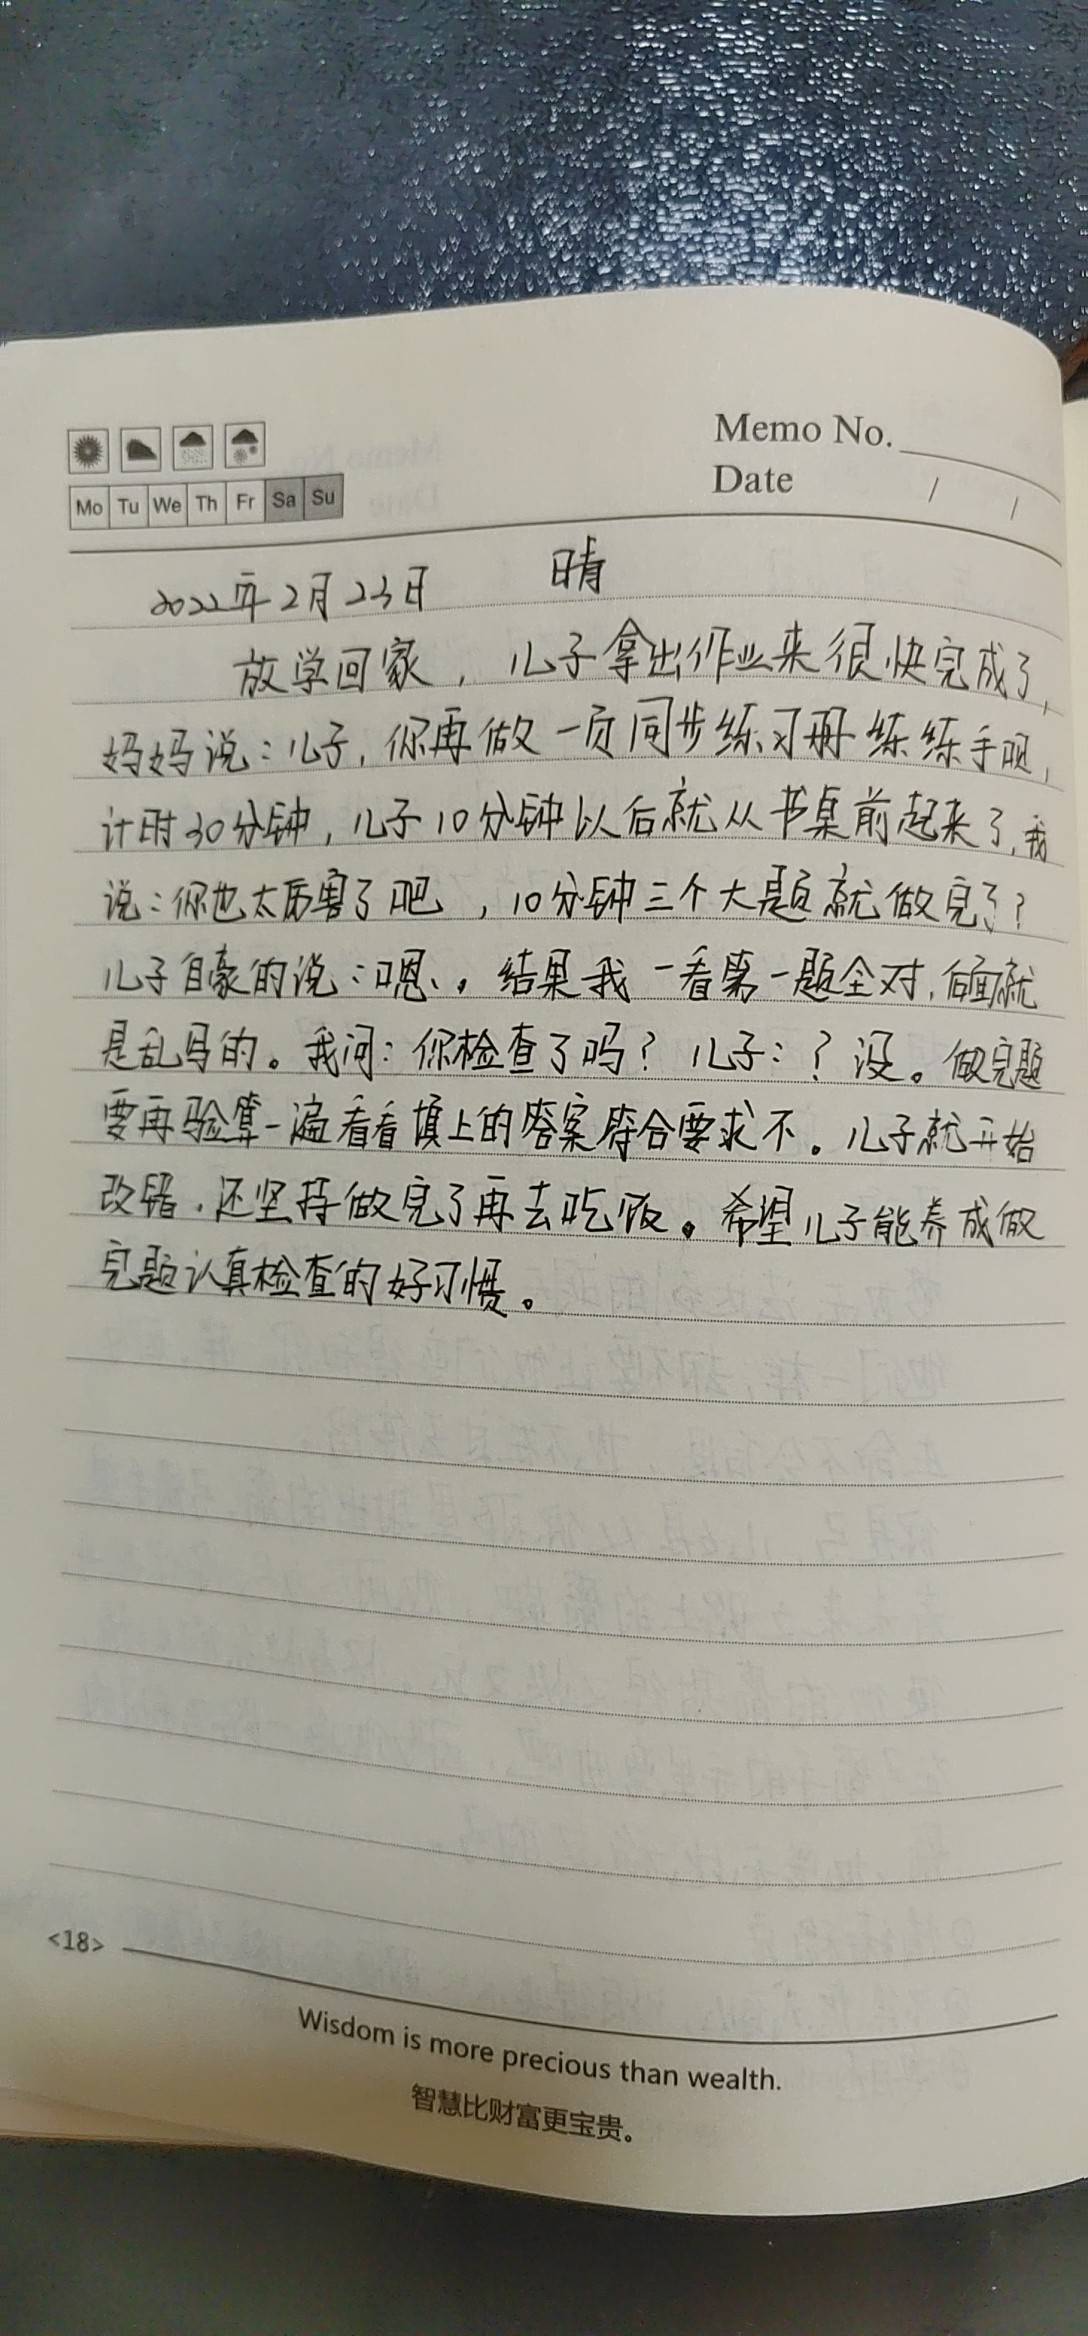 Memo No.
Date / /
Mo Tu We Th Fr Sa Su
2022年2月23日 晴
放学回家，儿子拿出作业来很快完成了，
妈妈说：儿子，你再做一页同步练习册练练手呗，
计时30分钟，儿子10分钟以后就从书桌前起来了，我
说：你也太厉害了吧，10分钟三个大题就做完了？
儿子自豪的说：嗯、。结果我一看第一题全对，后面就
是乱写的。我问：你检查了吗？儿子：？没。做完题
要再验算一遍看看填上的答案符合要求不。儿子就开始
改错，还坚持做完了再去吃饭。希望儿子能养成做
完题认真检查的好习惯。
<18>
Wisdom is more precious than wealth.
智慧比财富更宝贵。